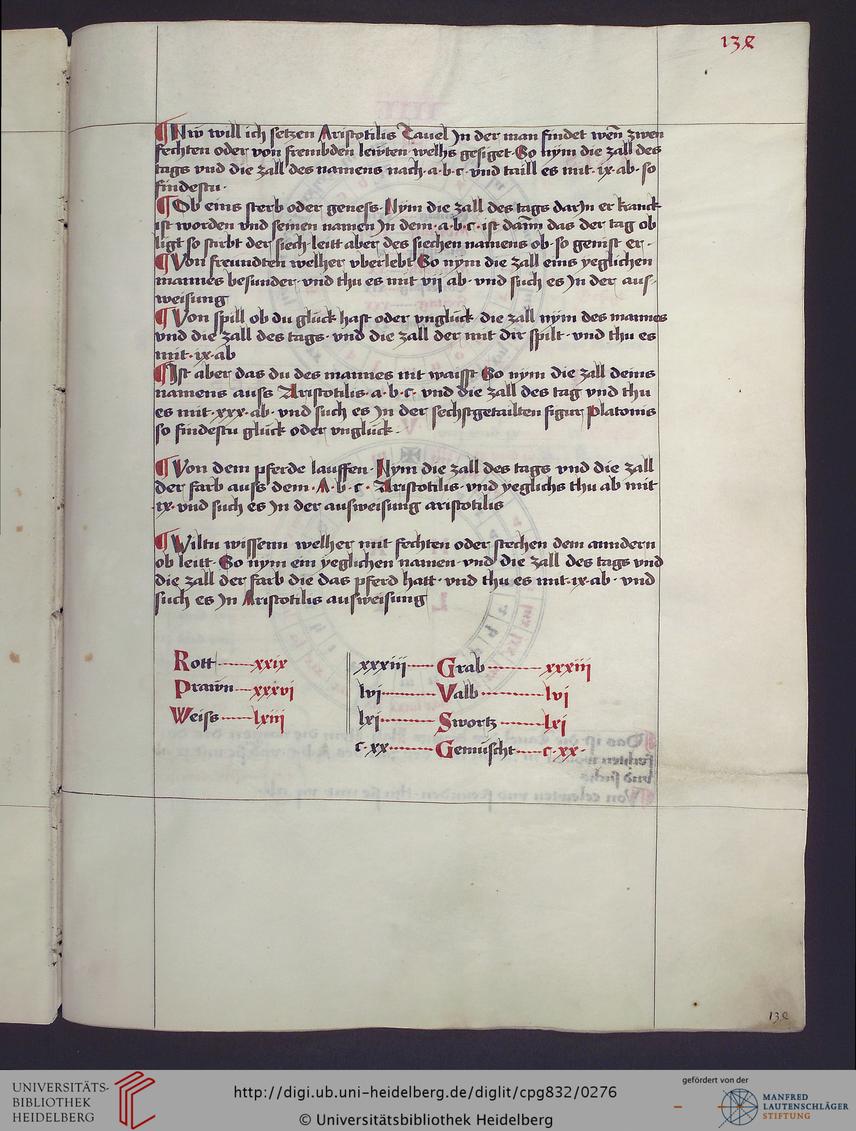 138
¶ Nw will ich setzen Aristotilis Tauel Jn der man findet weñ zwen
fechten oder von frembden lewten welhs gesiget · So nym die zall des
tags vnd die zall des namens nach · a · b · c · vnd taill es mit · ix · ab · so
findestu ·
¶ Ob eins sterb oder geness · Nym die zall des tags darJn er kranck
ist worden vnd seinen namen Jn dem · a · b · c · ist dañ das der tag ob
ligt so stirbt der siech · leitt aber des siechen namens ob · so genist er ·
¶ Von freundten welher vberlebt So nym die zall eins yeglichen
mannes besunder · vnd thu es mit vij ab · vnd such es Jn der aus-
weisung
¶ Von spill ob du glück hast oder vnglück · die zall nym des mannes
vnd die zall des tags · vnd die zall der mit dir spilt · vnd thu es
mit · ix · ab
¶ Ist aber das du des mannes nit waisst So nym die zall deins
namens auss Aristotilis · a · b · c · vnd die zall des tag vnd thu
es mit · xxx · ab · vnd such es Jn der sechstgetailten figur Platonis
so findestu glück oder vnglück ·
¶ Von dem pferde lauffen · Nym die zall des tags vnd die zall
der farb auss dem · A · b · c · Aristotilis · vnd yeglichs thu ab mit
ix · vnd such es Jn der ausweisung aristotilis
¶ Wiltu wissenn welher mit fechten oder stechen dem anndern
ob leitt · So nym ein yeglichen namen · vnd die zall des tags vnd
die zall der farb die das pferd hatt · vnd thu es mit · ix · ab · vnd
such es Jn Aristotilis ausweisung
Rott xxix
Prawn xxxvj
Weiss lxiij
xxxiij Grab xxxiij
lvj Valb lvj
lxj Swortz lxj
c · xx Gemüscht c · xx ·
138
UNIVERSITÄTS-
BIBLIOTHEK
HEIDELBERG
http://digi.ub.uni-heidelberg.de/diglit/cpg832/0276
© Universitätsbibliothek Heidelberg
gefördert von der
MANFRED
LAUTENSCHLÄGER
STIFTUNG